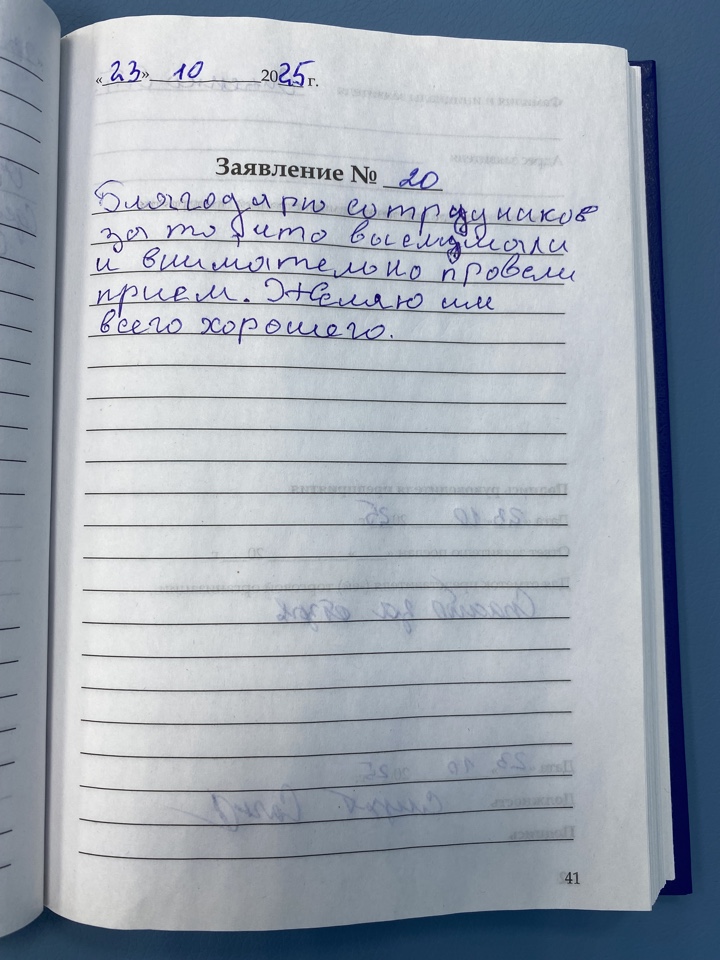 «23» 10 2025 г.
Заявление № 20
Благодарю сотрудников
за то, что выслушали
и внимательно провели
прием. Желаю им
всего хорошего.
41